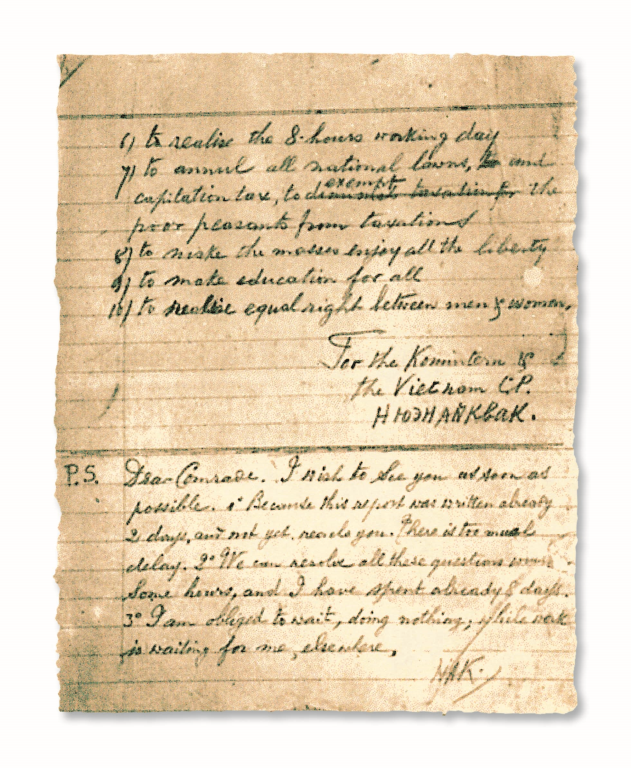 6) to realise the 8-hours working day
7) to annul all national lawns, to and
capitation tax, to diminish taxation for exempt the
poor peasants from taxations
8) to make the masses enjoy all the liberty
9) to make education for all
10) to realise equal right between men & women.
For the Komintern &
the Vietnam C.P.
P.S. Dear Comrade. I wish to see you as soon as
possible. 1° Because this report was written already
2 days, and not yet reach you. There is too much
delay. 2° We can resolve all these questions
some hours, and I have spent already 8 days.
3° I am obliged to wait, doing nothing, while work
is waiting for me, elsewhere,
NAK.